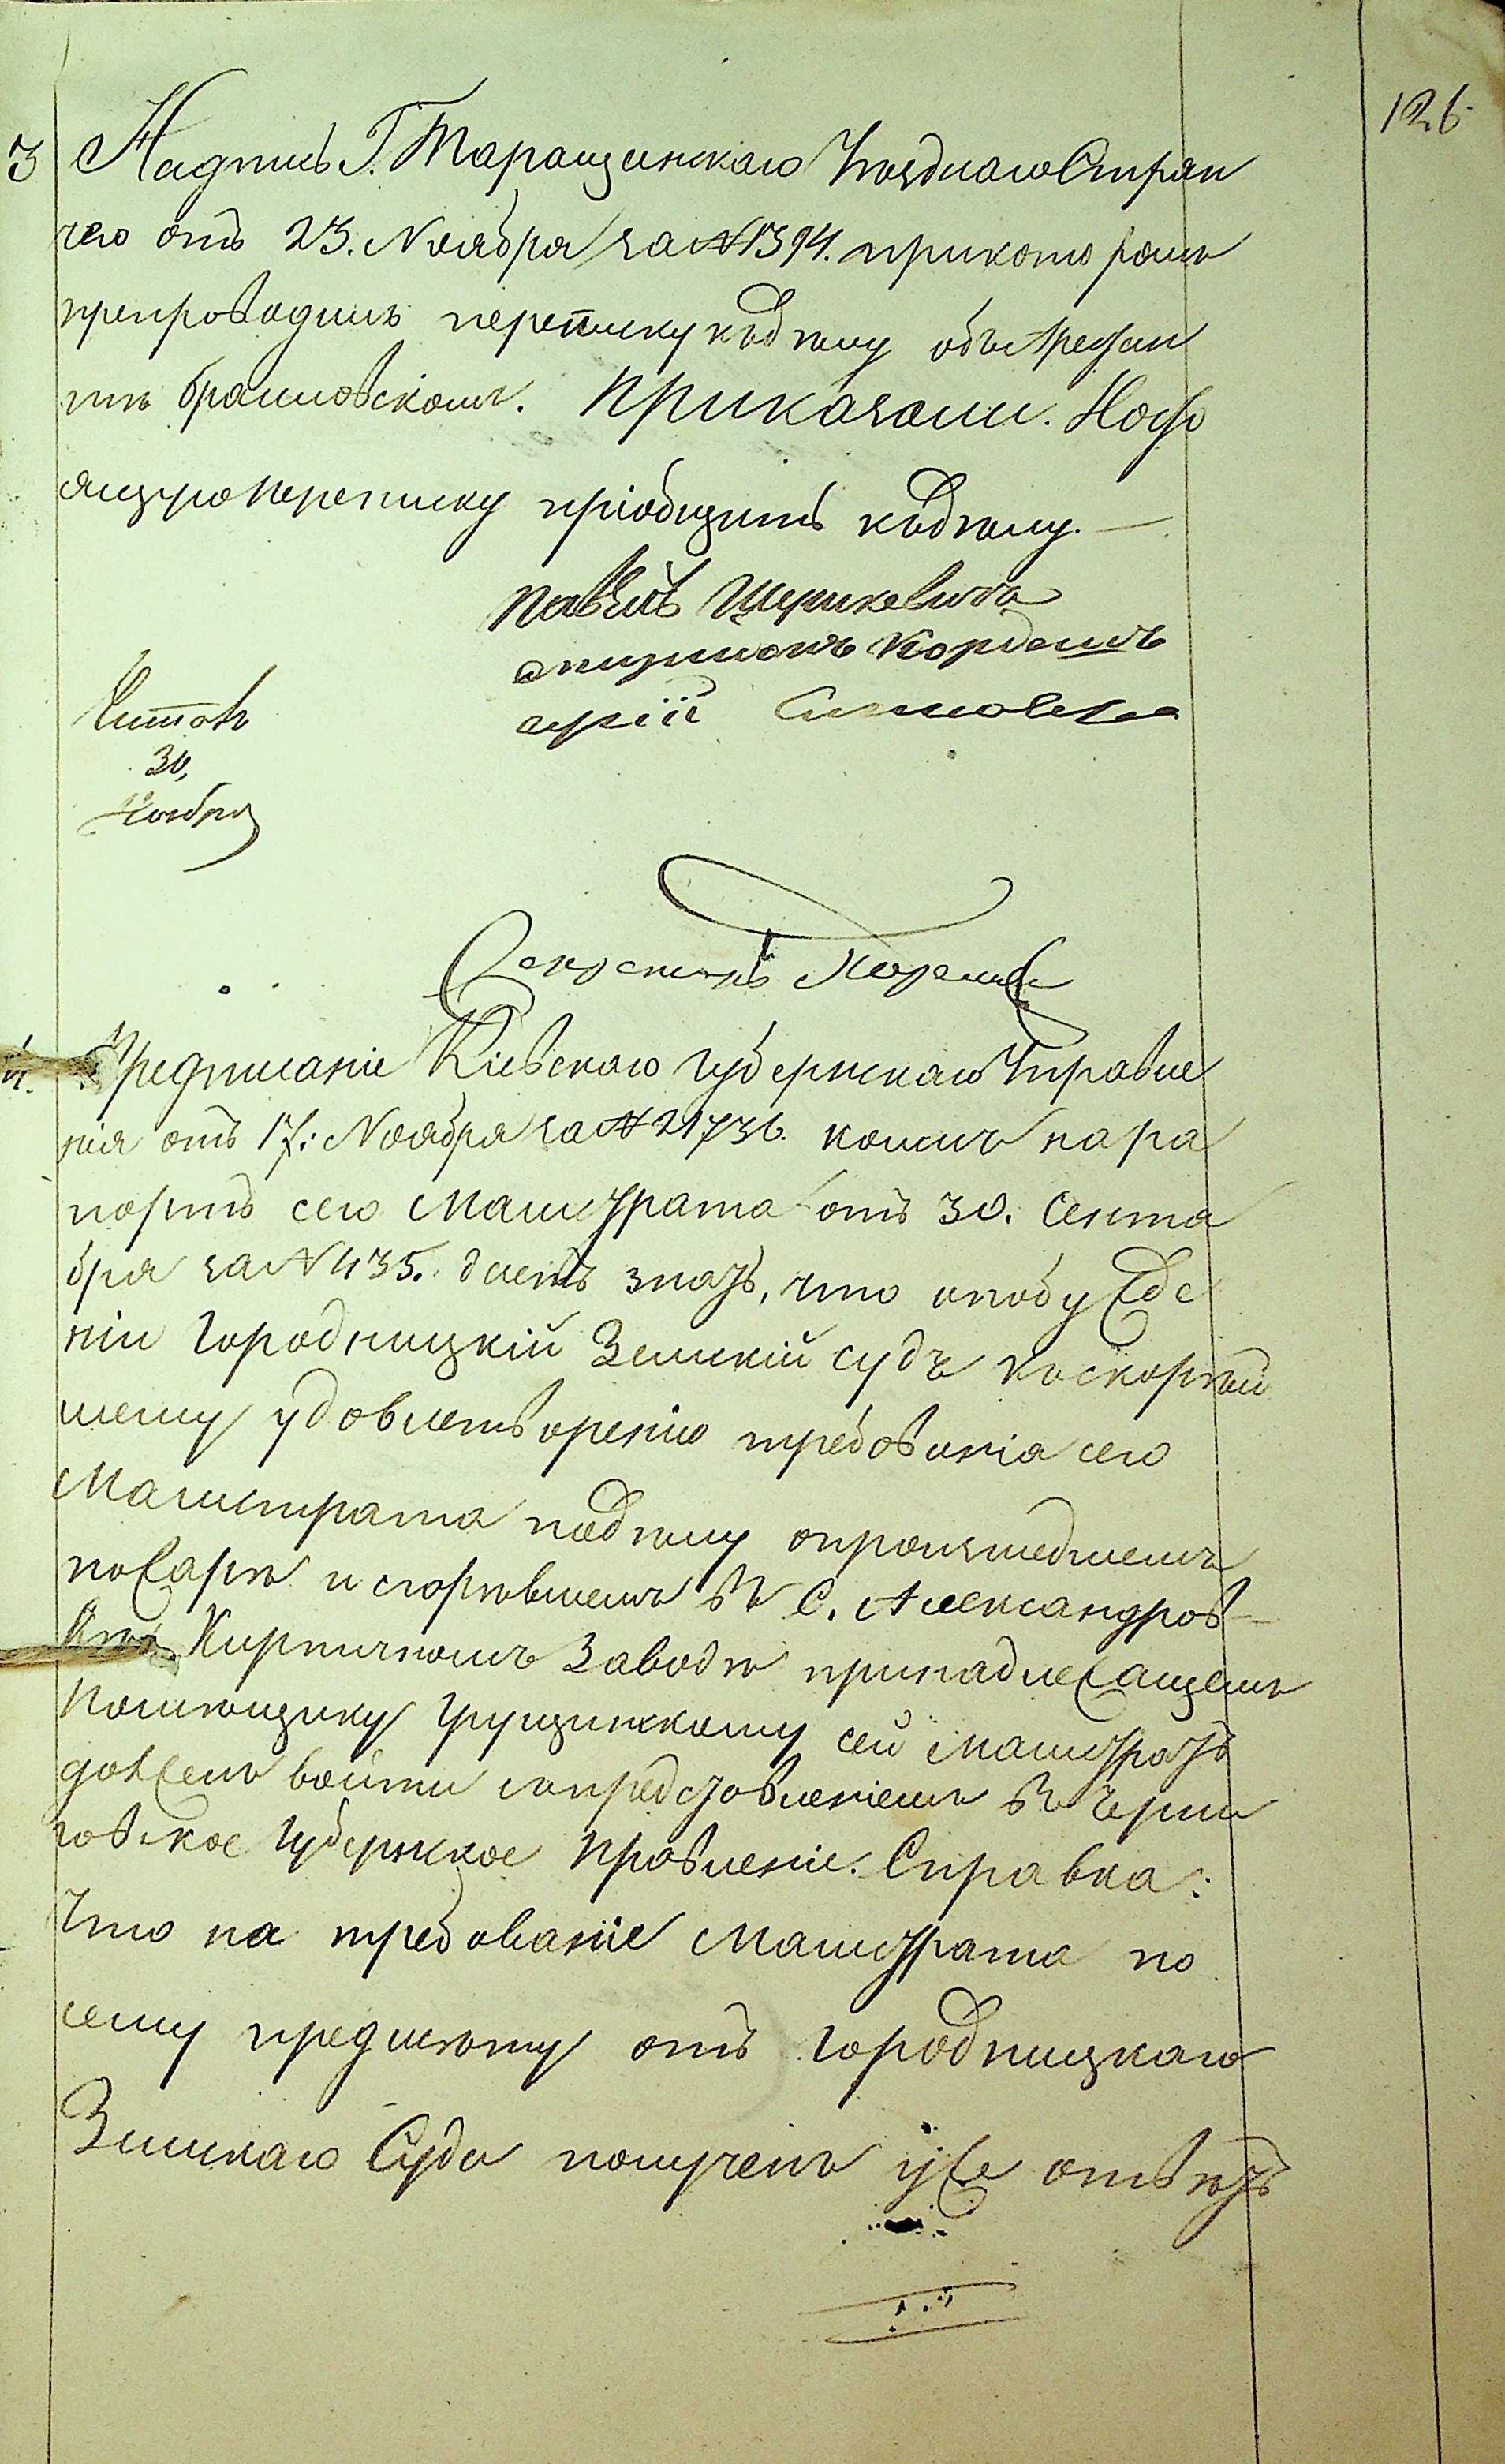 126
3 Надпись Г. Таращанскаго Уѣзднаго Стряп
чего отъ 23. Ноября за № 1394. прикоторомъ
препроводилъ переписку къдѣлу объ Арестан
тѣ приказали. Насто
ящую переписку пріобщить къдѣлу. —
Читалъ
30,
Ноября
Секретарь
4. Предписаніе Кіевскаго Губернскаго Правле
нія отъ 17: Ноября за № 21736. коимъ нара
портъ сего Магистрата отъ 30. Сентя
бря за № 435. даетъ знать, что опобужде
ніи Городницкій Земскій судъ къскорѣй
шему удовлетворенію требованія сего
Магистрата подѣлу опроизшедшемъ
пожарѣ и сгорѣвшемъ въ С. Александров-
кѣ Кирпичномъ Заводѣ принадлежащемъ
Помѣщику Грущинскому сей Магистратъ
долженъ войти спредставленіемъ въ Черни
говское Губернское Правленіе. Справка:
Что на требованіе Магистрата по
сему предмѣту отъ Городницкаго
Земскаго Суда полученъ уже отвѣтъ